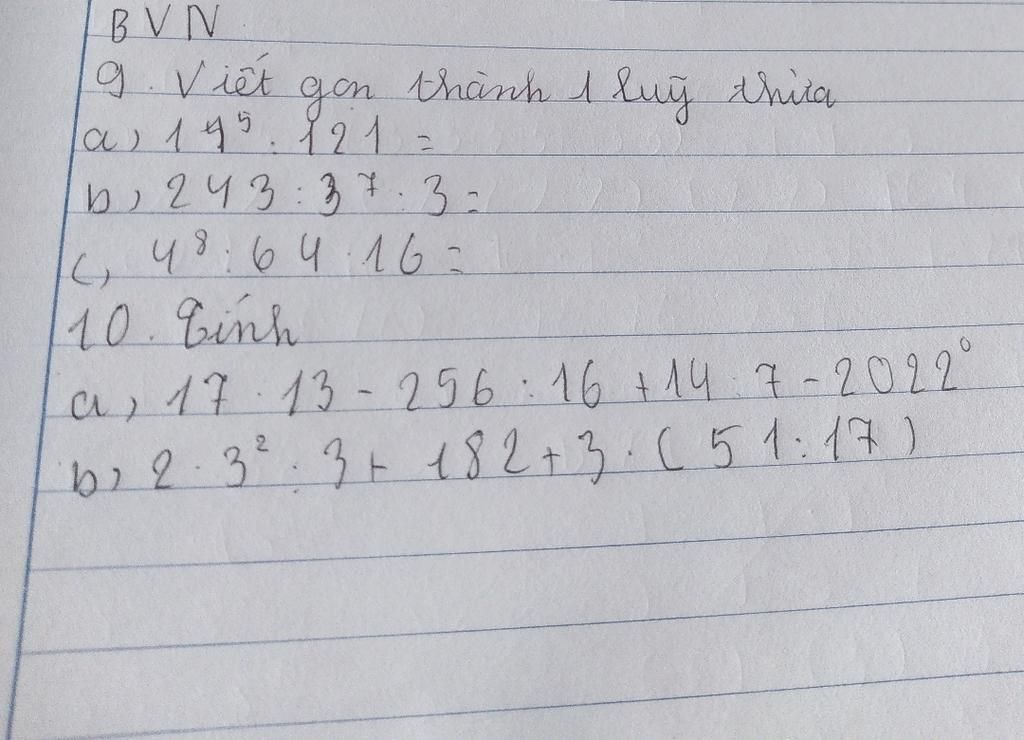 BVN
9. Viết gọn thành 1 luỹ thừa
a, 11⁵ . 121 =
b, 243 : 3⁷ . 3 =
c, 4⁸ : 64 . 16 =
10. Tính
a, 17 . 13 - 256 : 16 + 14 . 7 - 2022⁰
b, 2 . 3² : 3 + 182 + 3 . ( 51 : 17 )